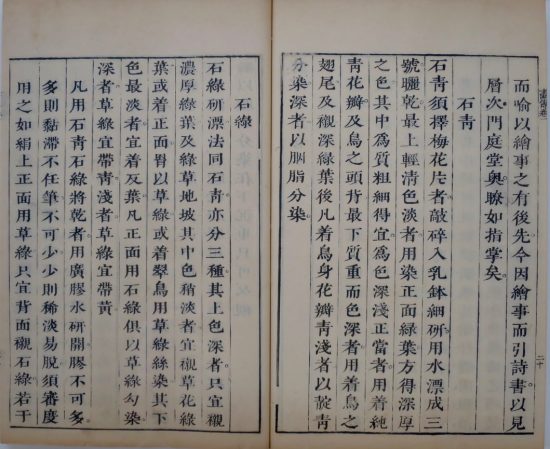 而喻以繪事之有後先今因繪事而引詩書以見
層次門庭堂奧瞭如指掌矣
石青
石青須擇梅花片者敲碎入乳鉢細研用水漂成三
號曬乾最上輕清色淡者用染正面綠葉方得深厚
之色其中為質粗細得宜為色深淺正當者用着純
青花瓣及鳥之頭背最下質重而色深者用着鳥之
翅尾及襯深綠葉後凡着鳥身花瓣青淺者以靛青
分染深者以胭脂分染
二十
石綠
石綠研漂法同石青亦分三種其上色深者只宜襯
濃厚綠葉及綠草地坡其中色稍淡者宜襯草花綠
葉或着正面以草綠或着翠鳥用草綠絲染其下
色最淡者宜着反葉凡正面用石綠俱以草綠勾染
深者草綠宜帶青淺者草綠宜帶黃
凡用石青石綠將乾者用廣膠水研開膠不可多
多則黏滯不任筆不可少少則稀淡易脫須審度
用之如絹上正面用草綠只宜背面襯石綠若干